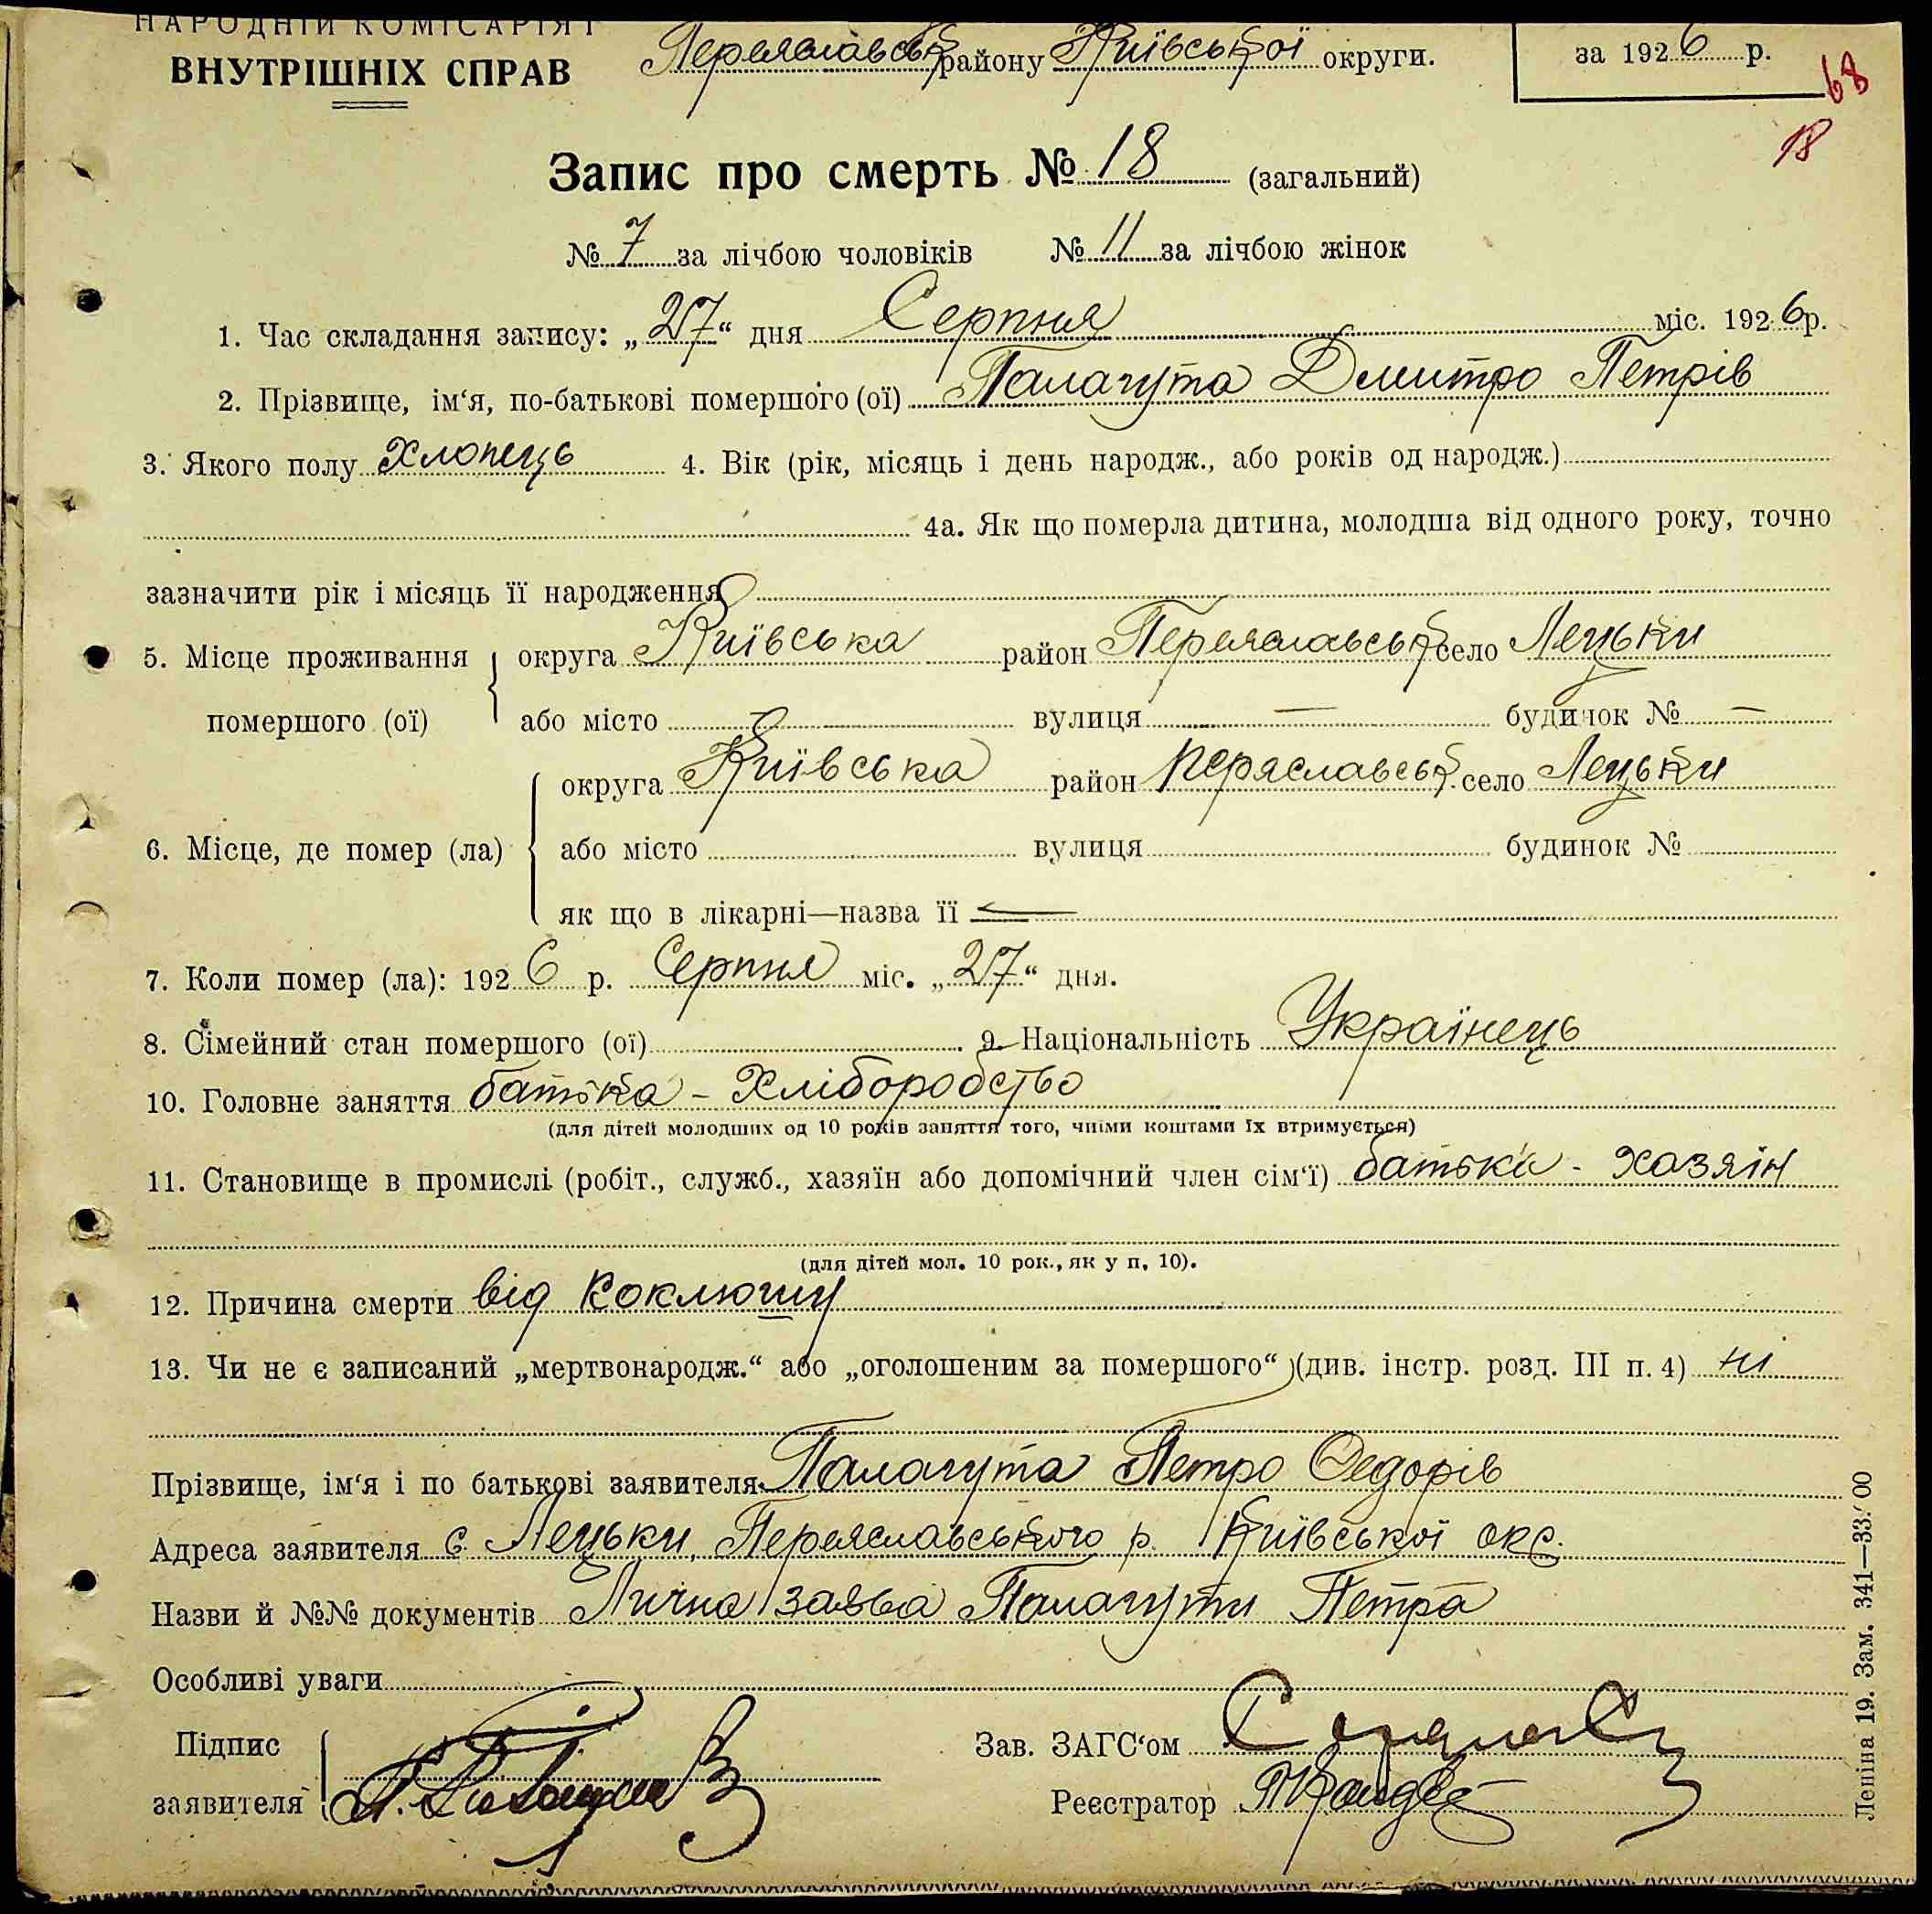 НАРОДНІЙ КОМІСАРІЯТ
ВНУТРІШНІХ СПРАВ
Переяславськ району Київської округи.
за 1926 р.
68
18
Запис про смерть № 18 (загальний)
№ 7 за лічбою чоловіків № 11 за лічбою жінок
1. Час складання запису: „27“ дня Серпня міс. 1926р.
2. Прізвище, ім‘я, по-батькові помершого (ої) Палагута Дмитро Петрів
3. Якого полу Хлопець 4. Вік (рік, місяць і день народж., або років од народж.)
4а. Як що померла дитина, молодша від одного року, точно
зазначити рік і місяць її народження
5. Місце проживання помершого (ої) округа Київська район Переяславськ село Лецьки
або місто — вулиця — будинок № —
6. Місце, де помер (ла) округа Київська район Переяславськ. село Лецьки
або місто вулиця будинок №
як що в лікарні—назва її —
7. Коли помер (ла): 1926 р. Серпня міс. „27“ дня.
8. Сімейний стан помершого (ої) 9. Національність Українець
10. Головне заняття батька - Хліборобство
(для дітей молодших од 10 років заняття того, чиїми коштами їх втримується)
11. Становище в промислі (робіт., служб., хазяїн або допомічний член сім‘ї) батька - хазяїн
(для дітей мол. 10 рок., як у п. 10).
12. Причина смерти від Коклюшу
13. Чи не є записаний „мертвонародж.“ або „оголошеним за помершого“ (див. інстр. розд. III п. 4) ні
Прізвище, ім‘я і по батькові заявителя Палагута Петро Федорів
Адреса заявителя с. Лецьки, Переяславського р. Київської окр.
Назви й №№ документів Лична заява Палагути Петра
Особливі уваги
Підпис заявителя
Зав. ЗАГС‘ом
Реєстратор
Леніна 19. Зам. 341—33.000